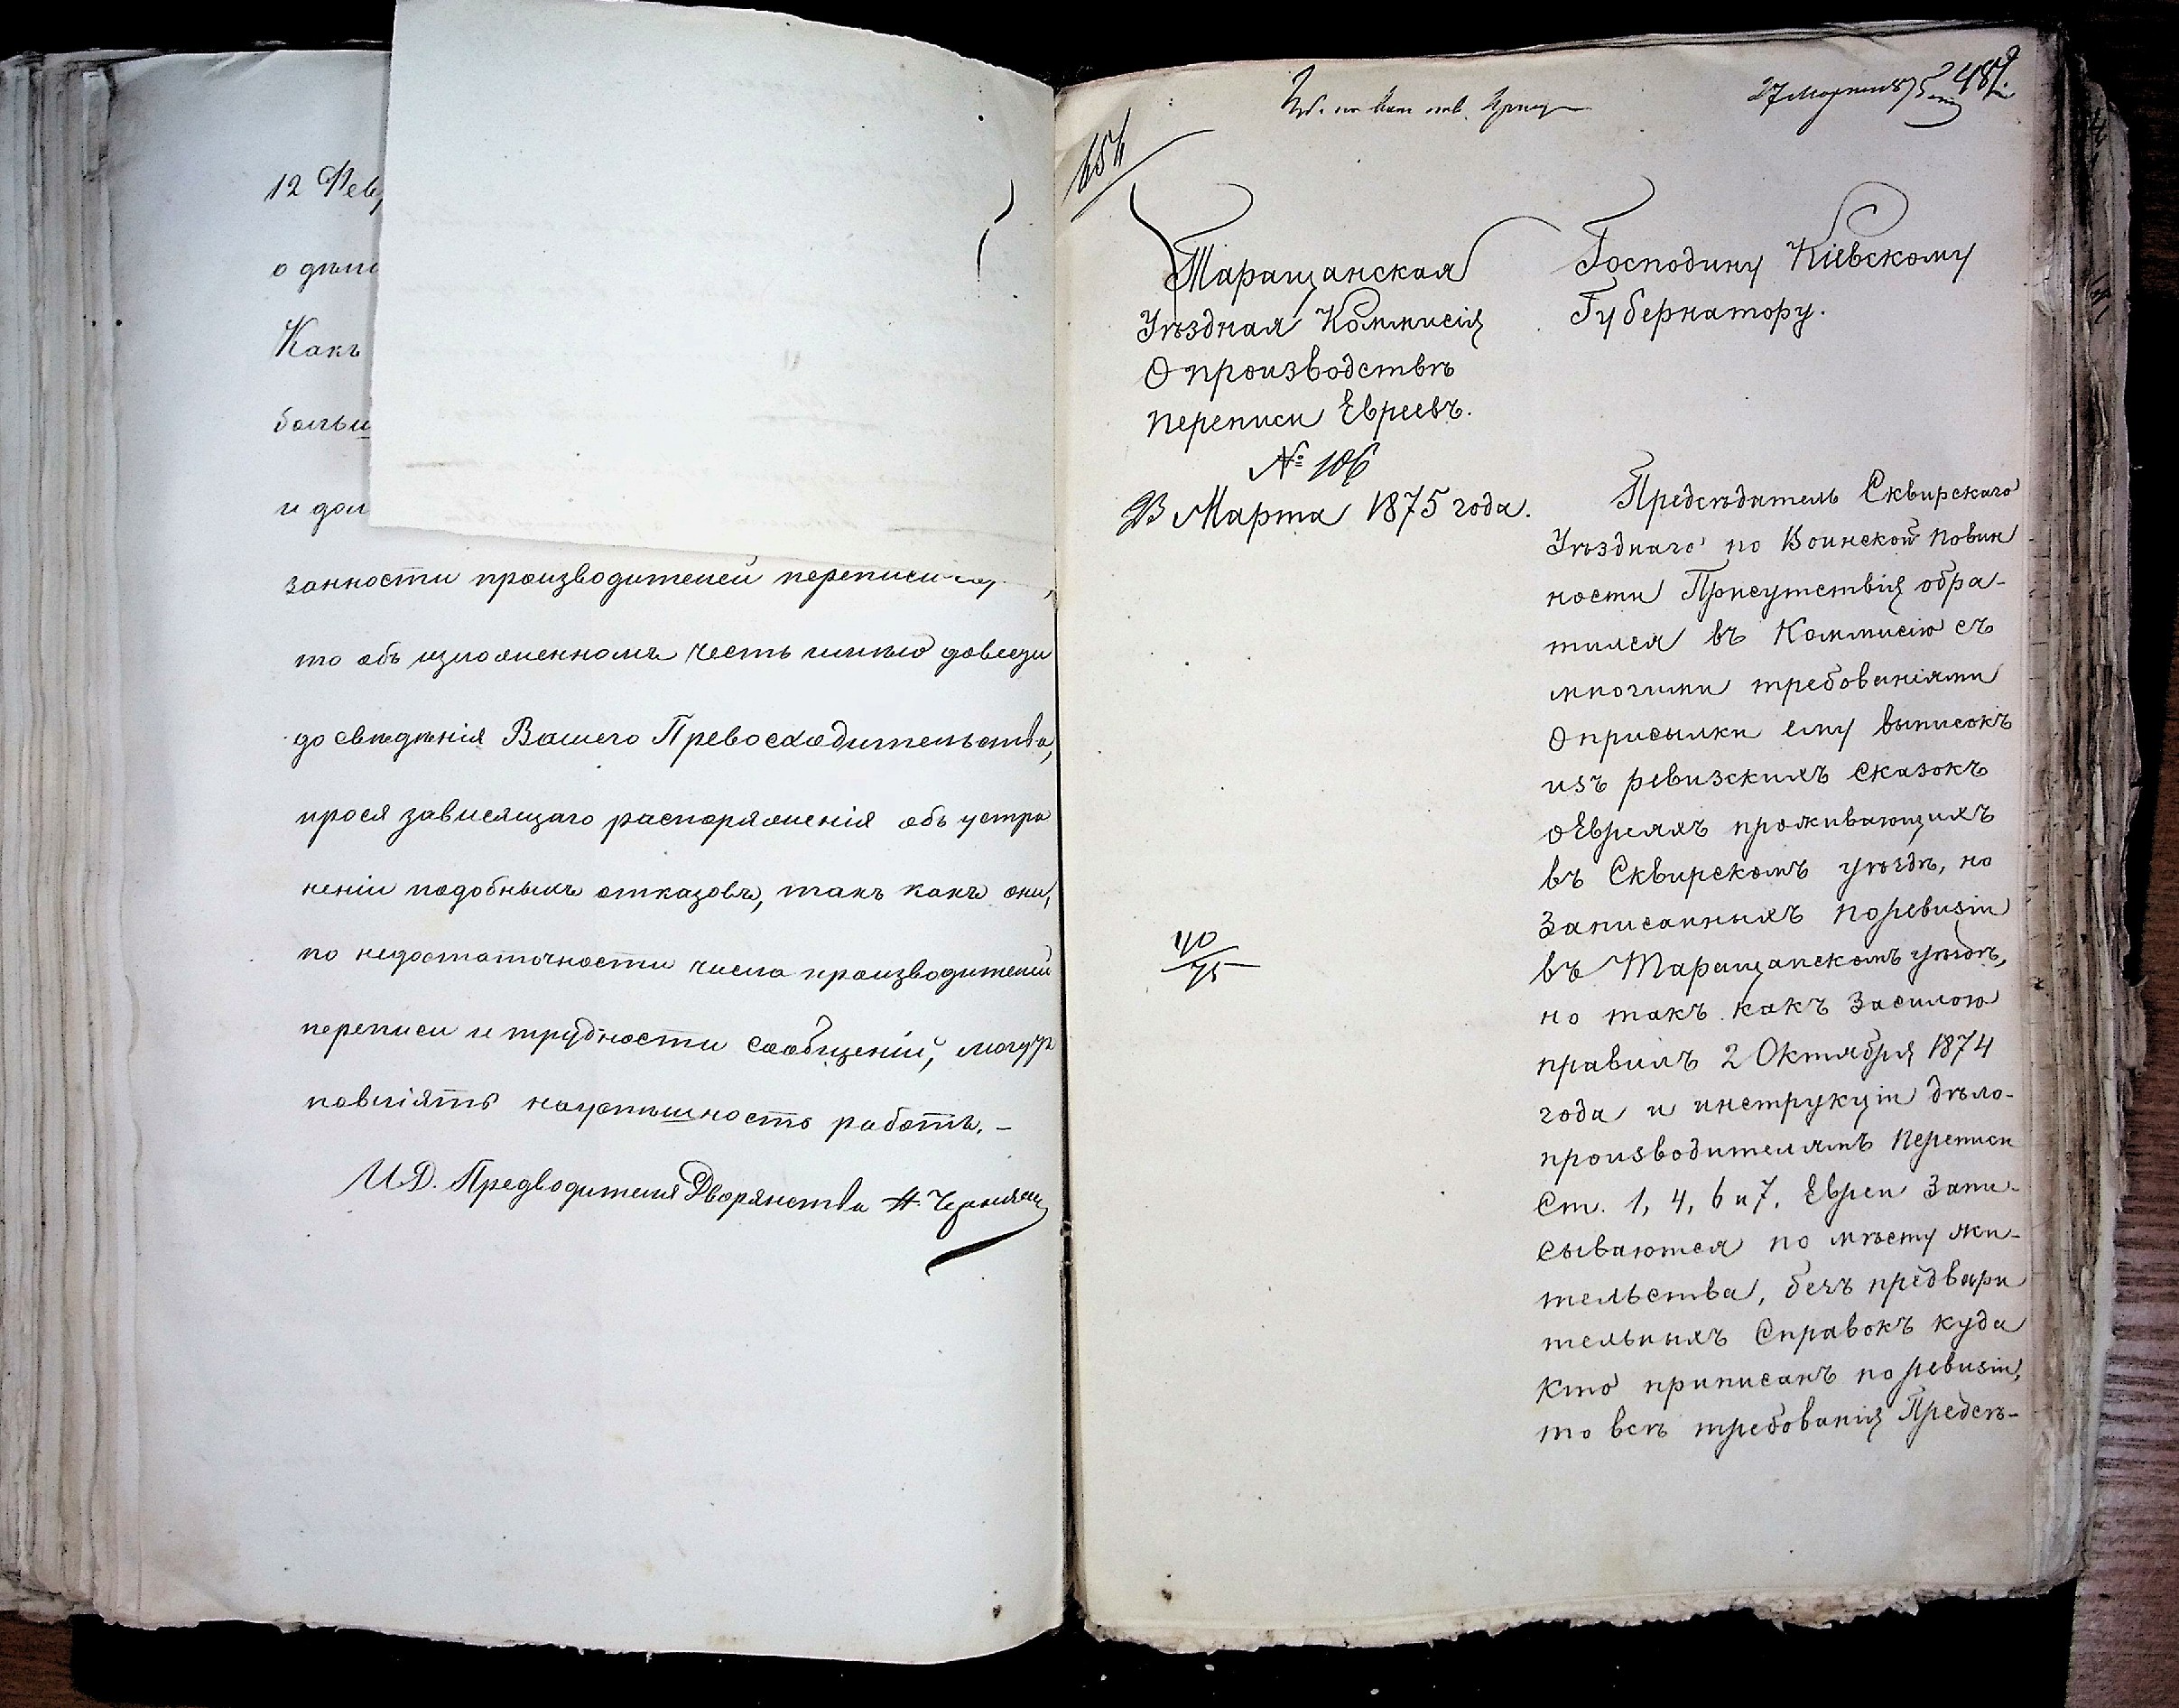 12 Фев
о
Какъ
больш
и дол
занности производителей переписи
то объ изложенномъ честь имѣю довести
до свѣдѣнія Вашего Превосходительства,
прося зависящаго распоряженія объ устра
неніи подобныхъ отказовъ, такъ какъ они,
по недостаточности числа производителей
переписи и трудности сообщеній, могутъ
повліять на успѣшность работъ. –
И.Д. Предводителя Дворянства
27 Марта 487.
654
Таращанская
Уѣздная Коммисія
О производствѣ
переписи Евреевъ.
№ 106
23 Марта 1875 года.
40
75
Господину Кіевскому
Губернатору.
Предсѣдатель Сквирскаго
Уѣзднаго по Воинской повин
ности Присутствія обра-
тился въ Коммисію съ
многими требованіями
О присылки ему выписокъ
изъ ревизскихъ сказокъ
о Евреяхъ проживающихъ
въ Сквирскомъ уѣздѣ, но
Записанныхъ по ревизіи
въ Таращанскомъ уѣздѣ,
но такъ какъ Засилою
правилъ 2 Октября 1874
года и инструкціи дѣло-
производителямъ переписи
Ст. 1, 4, 6 и 7. Евреи Запи-
сываются по мѣсту жи-
тельства, безъ предвари
тельныхъ Справокъ куда
Кто приписанъ по ревизіи,
то всѣ требованія Предсѣ-